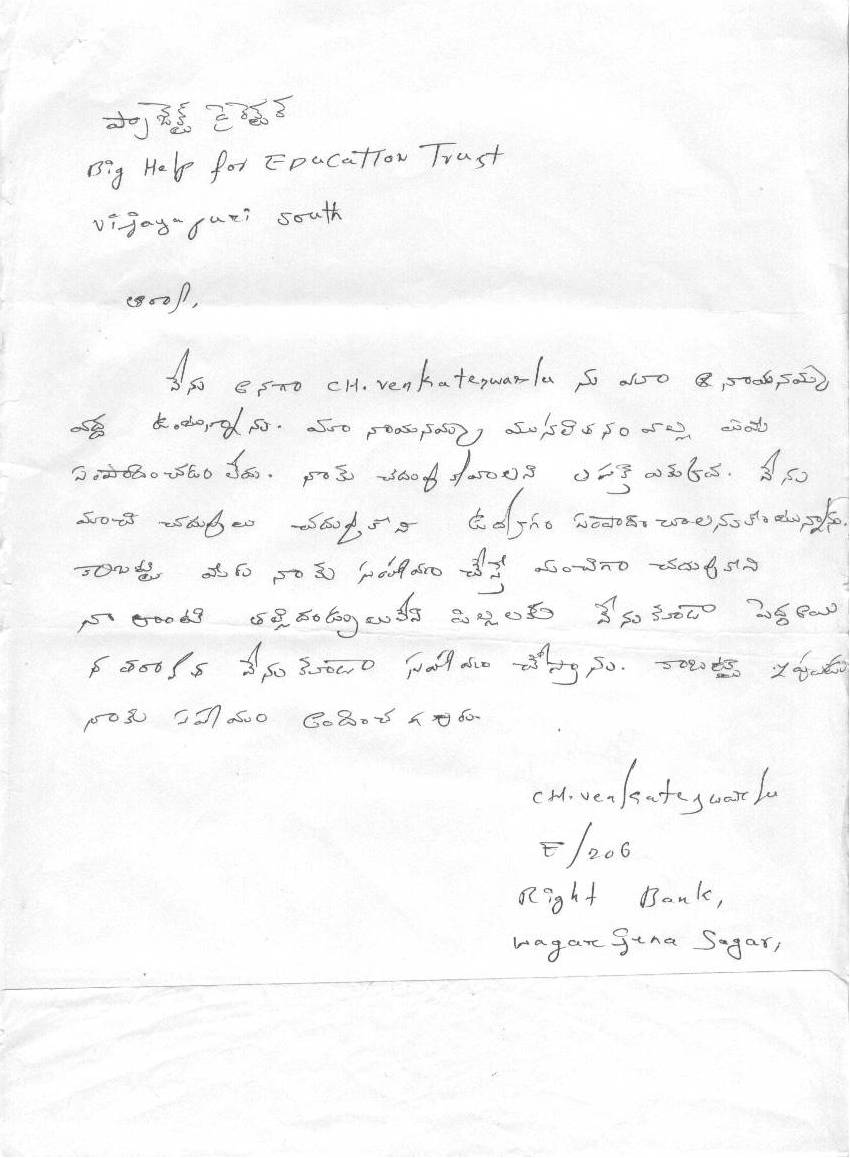 ప్రాజెక్ట్ డైరెక్టర్
Big Help for EDUCATION Trust
Vijayapuri South
నేను అనగా CH. Venkateswarlu ను మా నాయనమ్మ
వద్ద ఉంటున్నాను. మా నాయనమ్మ ముసలితనం వల్ల ఏమి
సంపాదించడం లేదు. నాకు చదువు కోవాలని ఆసక్తి ఎక్కువ. నేను
మంచి చదువులు చదువుకొని ఉద్యోగం సంపాదించాలనుకొంటున్నాను.
కాబట్టి మీరు నాకు సహాయం చేస్తే మంచిగా చదువుకొని
నా లాంటి తల్లిదండ్రులులేని పిల్లలకు నేనుకూడా పెద్దఅయి
న తరువాత నేనుకూడా సహాయం చేస్తాను. కాబట్టి ఇప్పుడు
నాకు సహాయం అందించ గలరు.
CH. Venkateswarlu
E/206
Right Bank,
Nagarjuna Sagar,